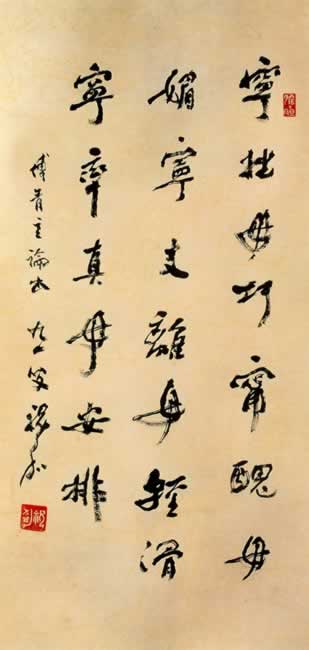 寧拙毋巧甯醜毋
媚寧支離毋輕滑
寧率真毋安排
傅青主論書 九一叟祝嘉